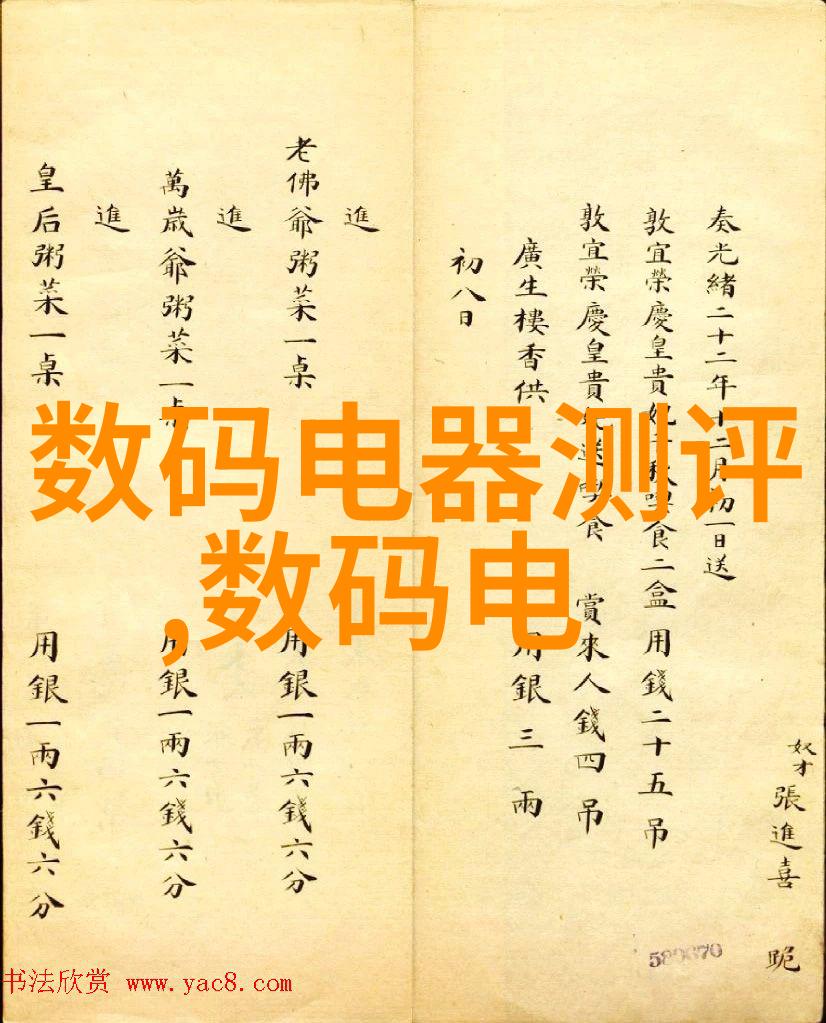 奴才張進喜 跪
奏光緒二十二年十二月初一日送
敦宜榮慶皇貴妃 食二盒用錢二十五吊
敦宜榮慶皇貴 送 食 賞來人錢四吊
廣生樓香供 用銀三兩
初八日
進
老佛爺粥菜一桌 用銀一兩六錢六分
進
萬歲爺粥菜一桌 用銀一兩六錢六分
進
皇后粥菜一桌 用銀一兩六錢六分
数码电器测评
,数码电
589670
书法欣赏 www.yac8.com